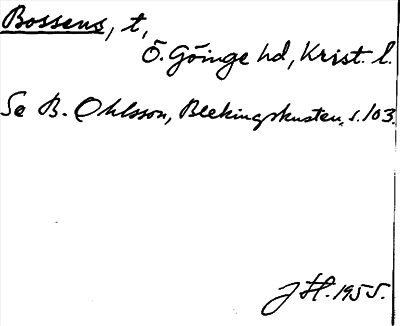 Bossens, t,
Ö. Göinge hd, Krist. l.
Se B. Ohlsson, Blekingskusten, s. 103.
JH. 1955.